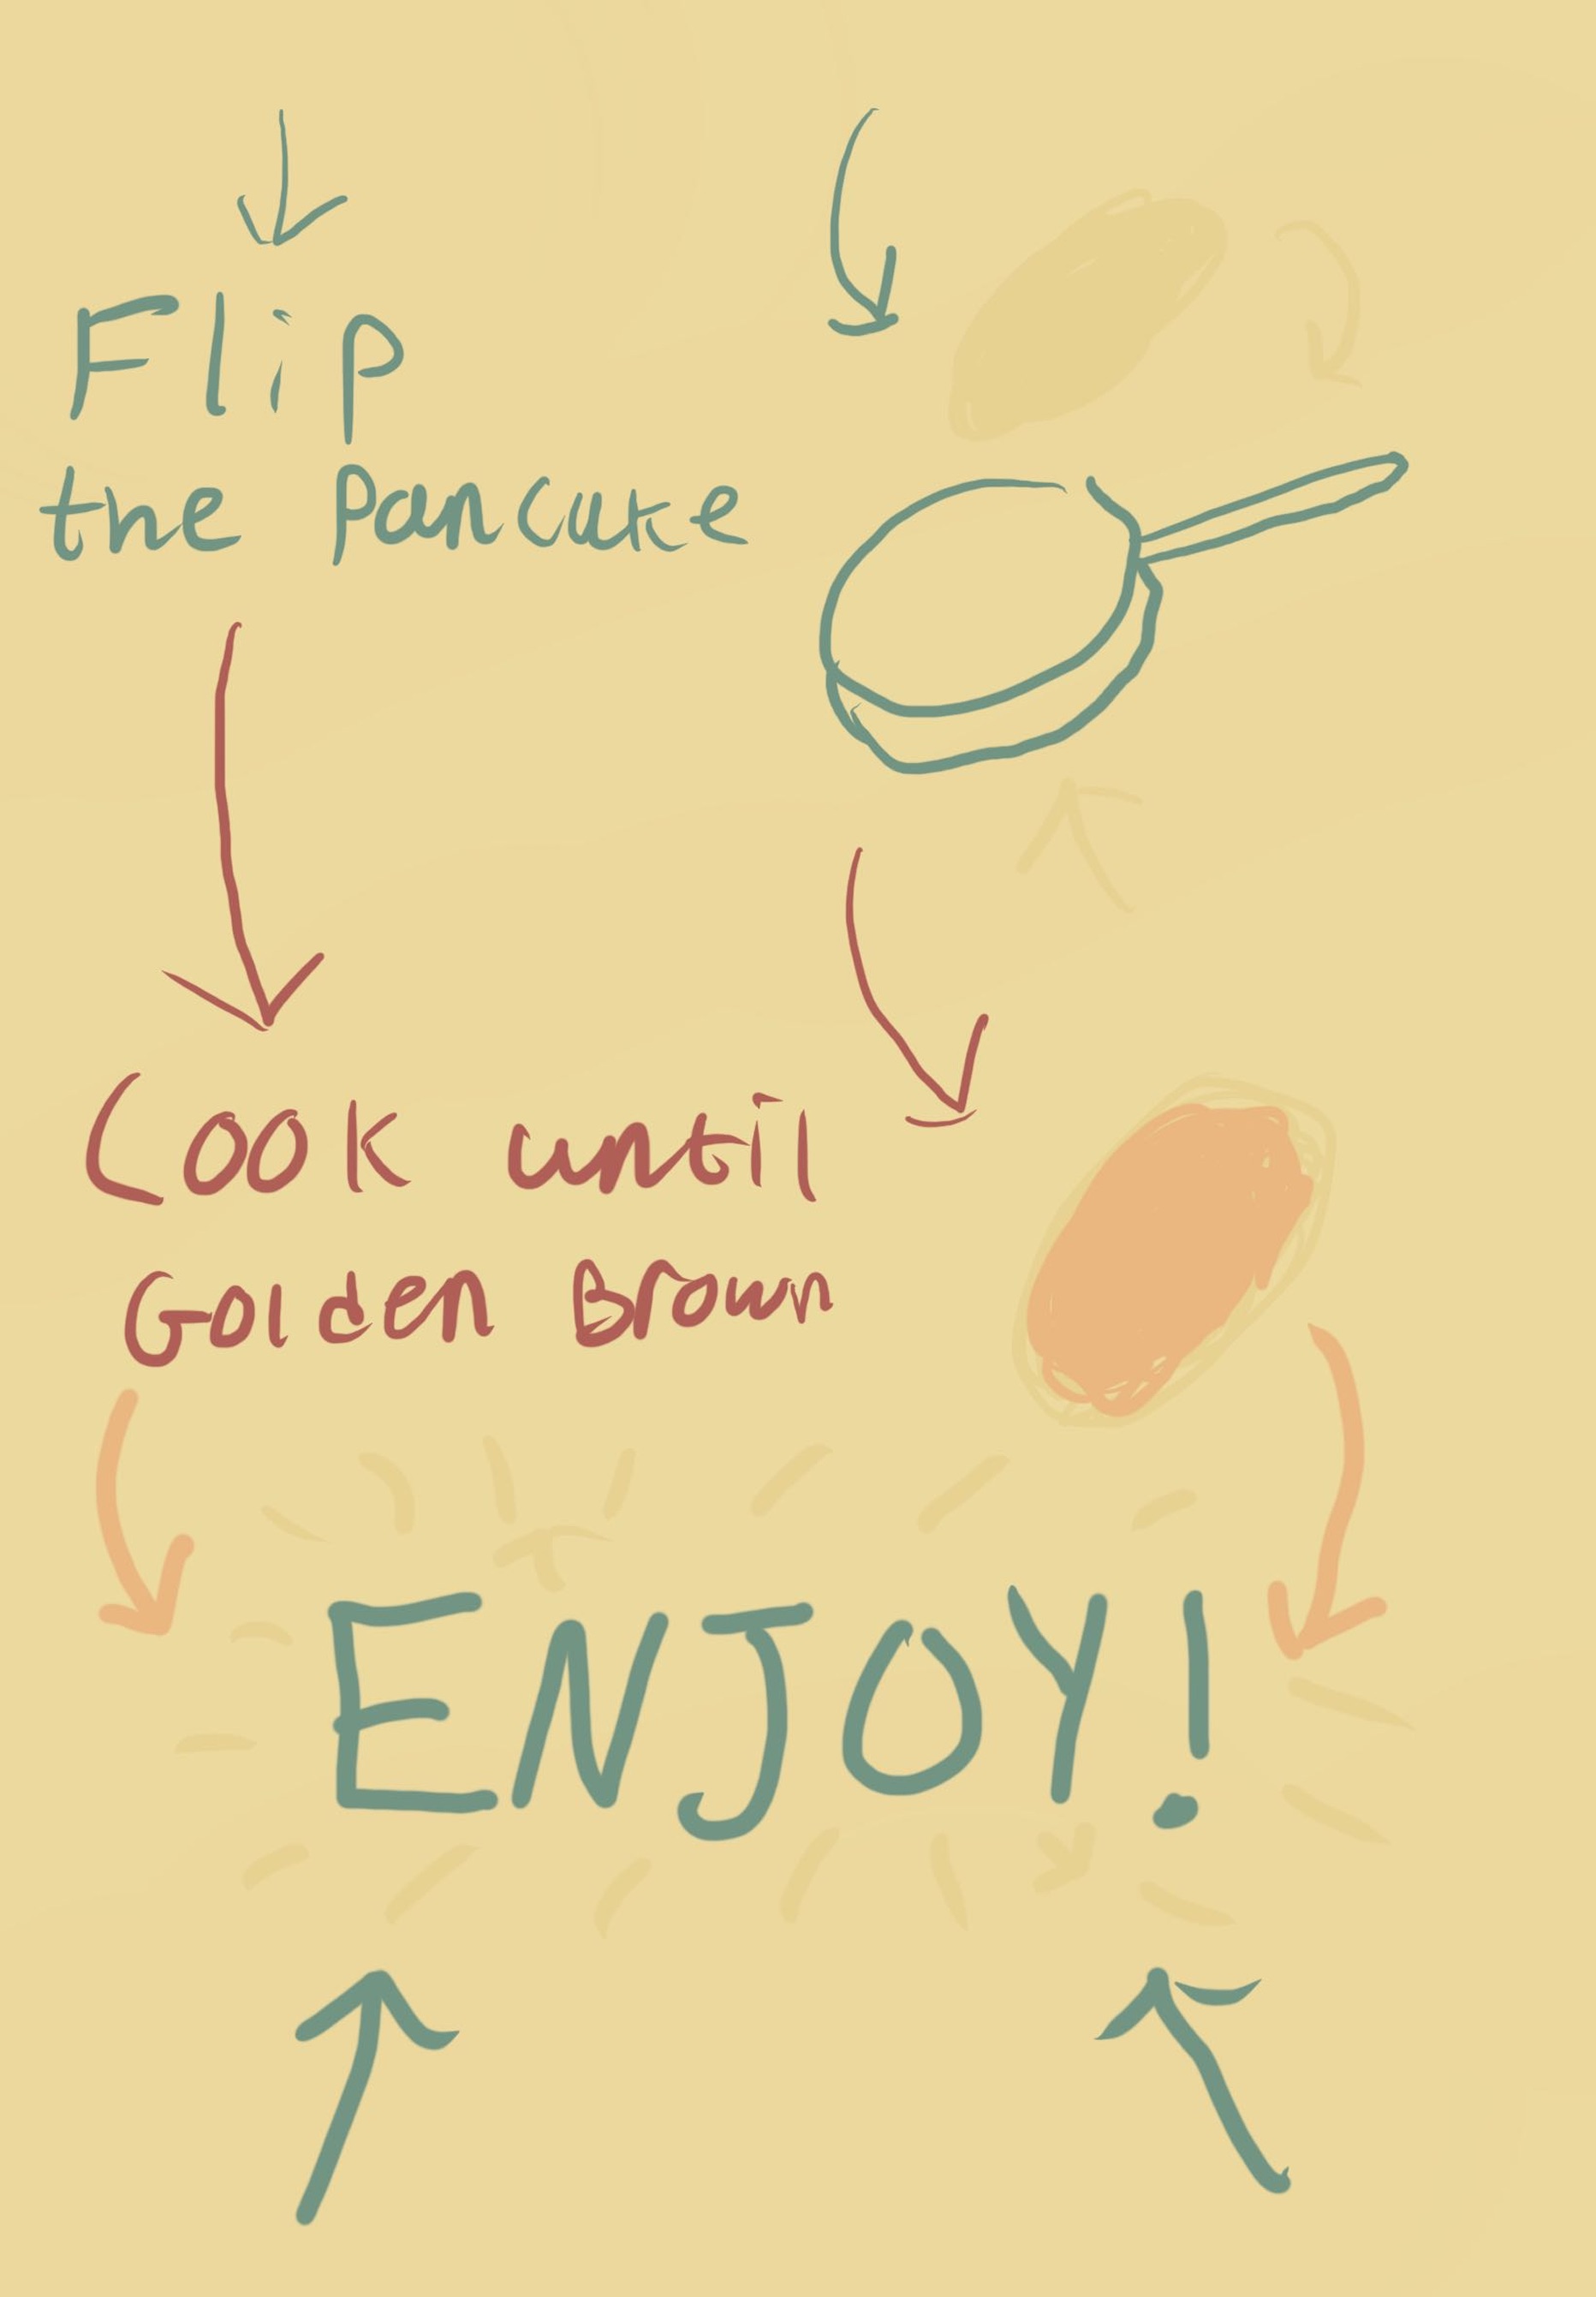 Flip
the Pancake
Cook until
Golden Brown
ENJOY!